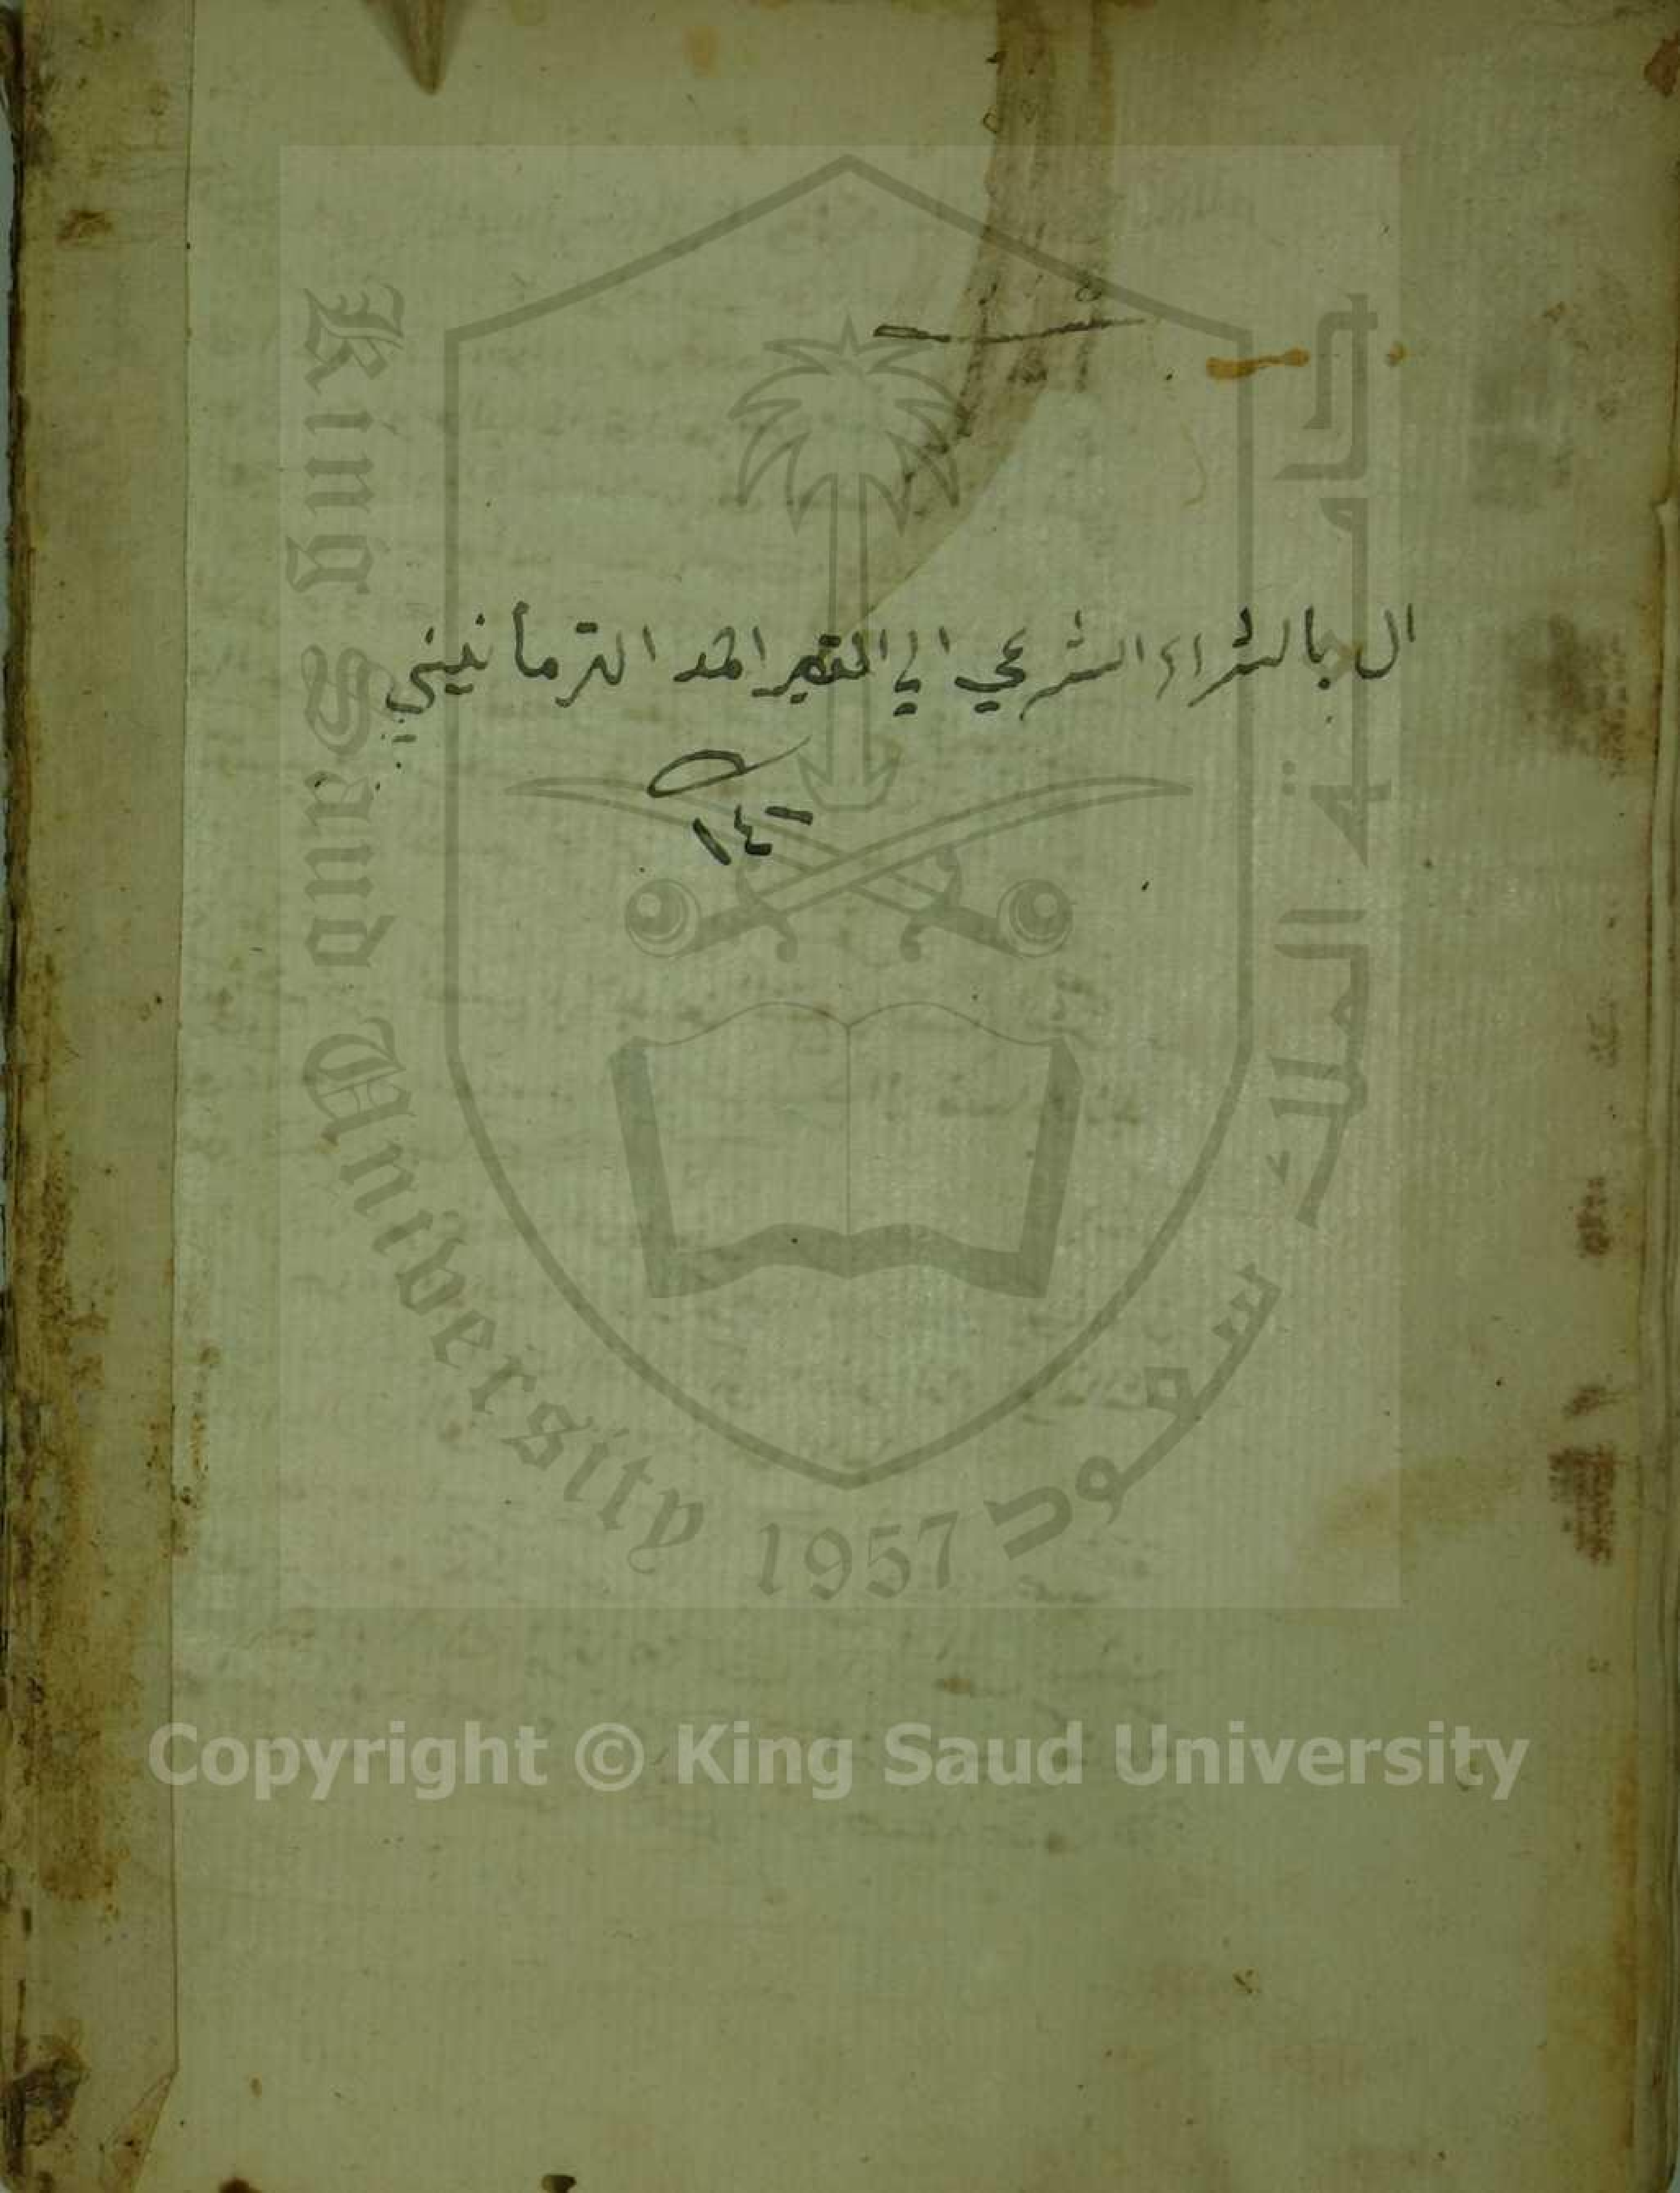 ال بالشراء الشرعي الي الفقير احمد الترمانيني
١٤
King Saud University 1957
جامعة الملك سعود
Copyright © King Saud University